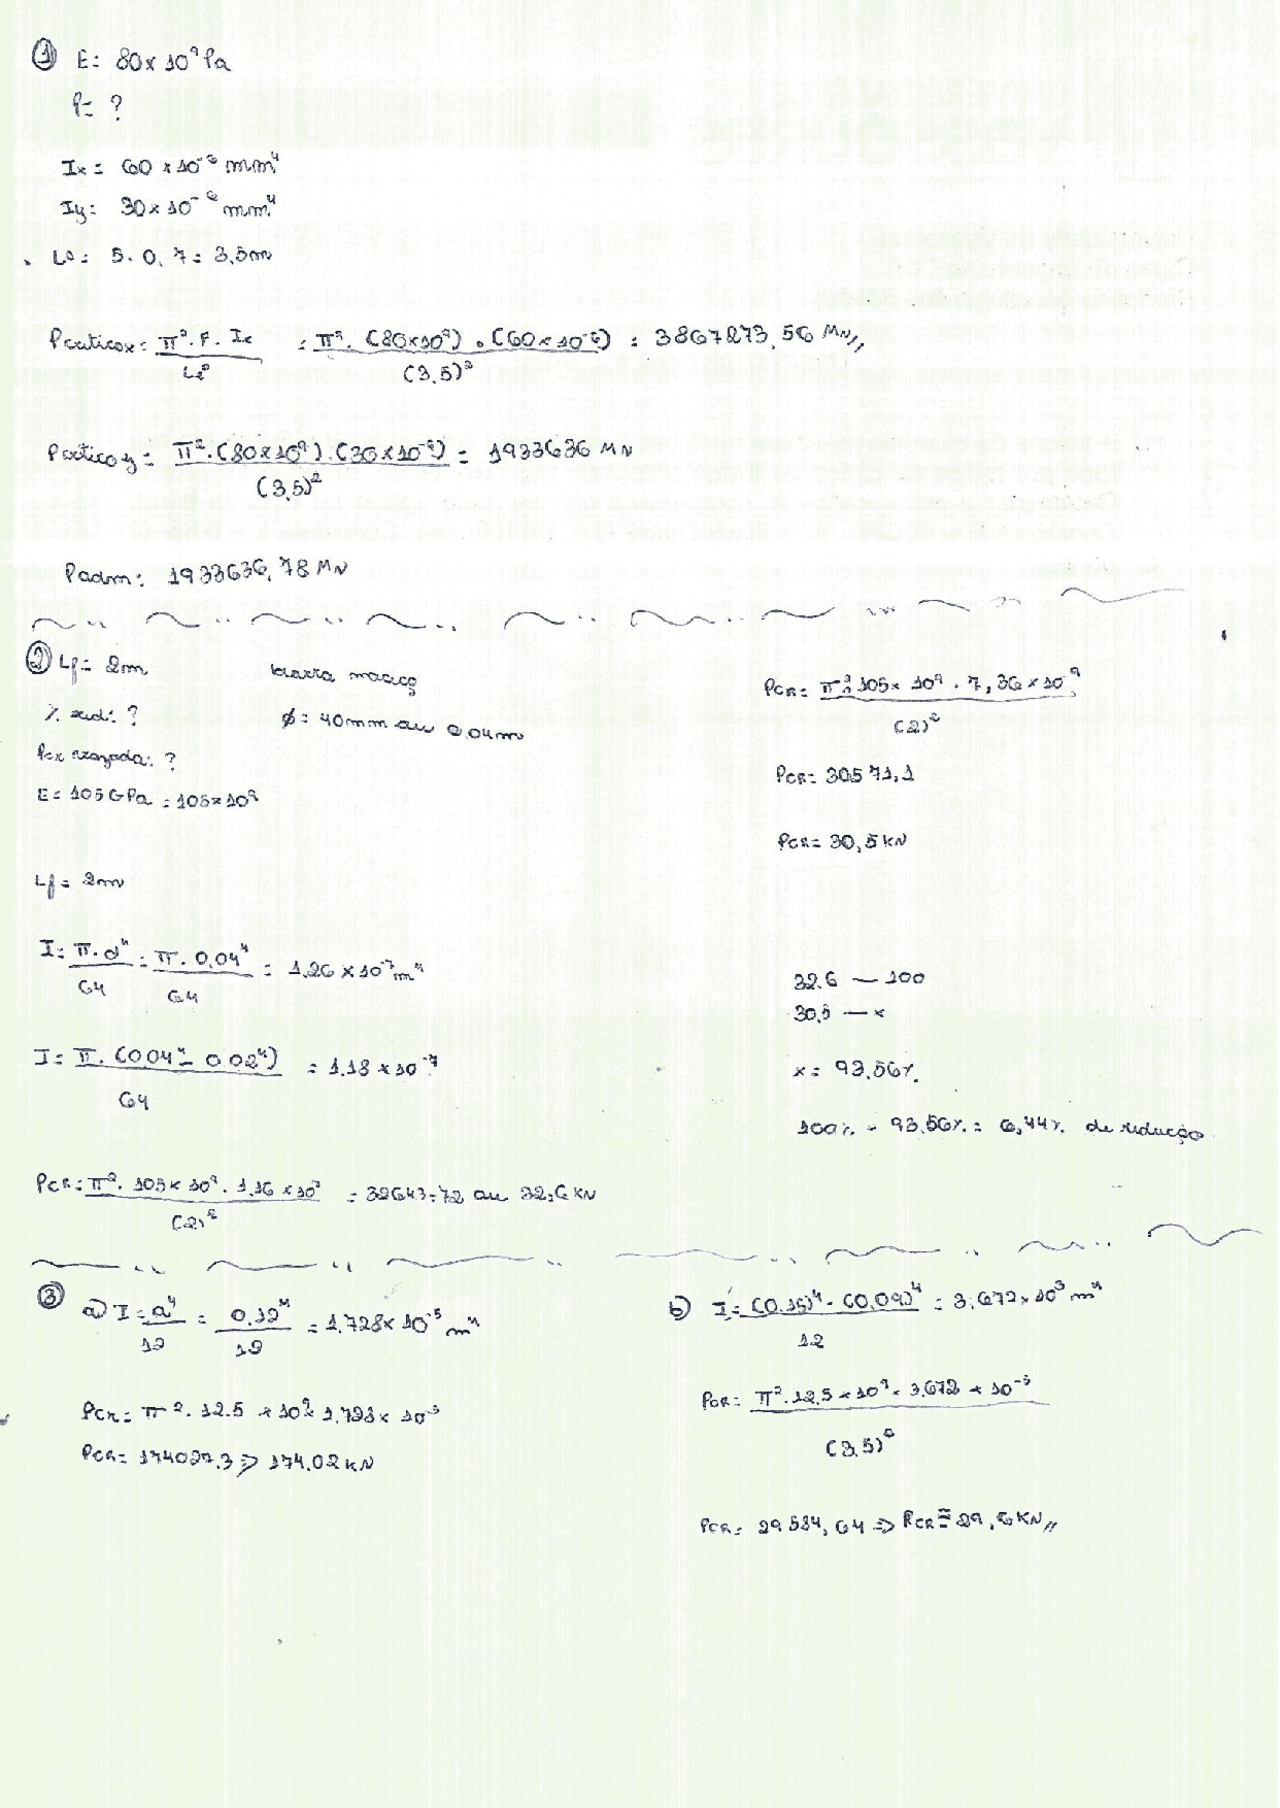 ① E: 80x10⁹ Pa
P= ?
Ix= 60 x 10⁻⁶ mm⁴
Iy: 30x10⁻⁶ mm⁴
Le: 5.0,7= 3,5m
Pcriticox= π².E.Ix / Le² = π². (80x10⁹) . (60x10⁻⁶) / (3,5)² = 3867273,56 MN//
Pcritico y= π².(80x10⁹).(30x10⁻⁶) / (3,5)² = 1933636 MN
Padm: 1933636,78 MN
② Lf= 2m
% red: ?
Pcr vazada: ?
E= 105 GPa = 105x10⁹
barra maciça
ϕ= 40mm ou 0,04m
Lf= 2m
I= π.d⁴ / 64 = π. 0,04⁴ / 64 = 1,26 x 10⁻⁷ m⁴
I= π. (0,04⁴ - 0,02⁴) / 64 = 1.18 x 10⁻⁷
PCR= π². 105x10⁹. 1,26 x 10⁷ / (2)² = 32643,72 ou 32,6 KN
PCR= π². 105x 10⁹ . 7,36 x 10⁻⁹ / (2)²
PCR= 30571,1
PCR= 30,5 KN
32.6 — 100
30,5 — x
x= 93,56%
100% - 93,56%= 6,44% de redução
③ a) I= a⁴ / 12 = 0.12⁴ / 12 = 1.728x 10⁻⁵ m⁴
PCR= π². 12.5 x 10⁹ x 1,728x 10⁻⁵
PCR= 174027.3 ⇒ 174.02 KN
b) I= (0.15)⁴ - (0,09)⁴ / 12 = 3.672x10⁵ m⁴
PCR= π².12.5x10⁹. 3.672 x 10⁻⁵ / (3,5)²
PCR= 29584,64 ⇒ PCR ≅ 29,6 KN//